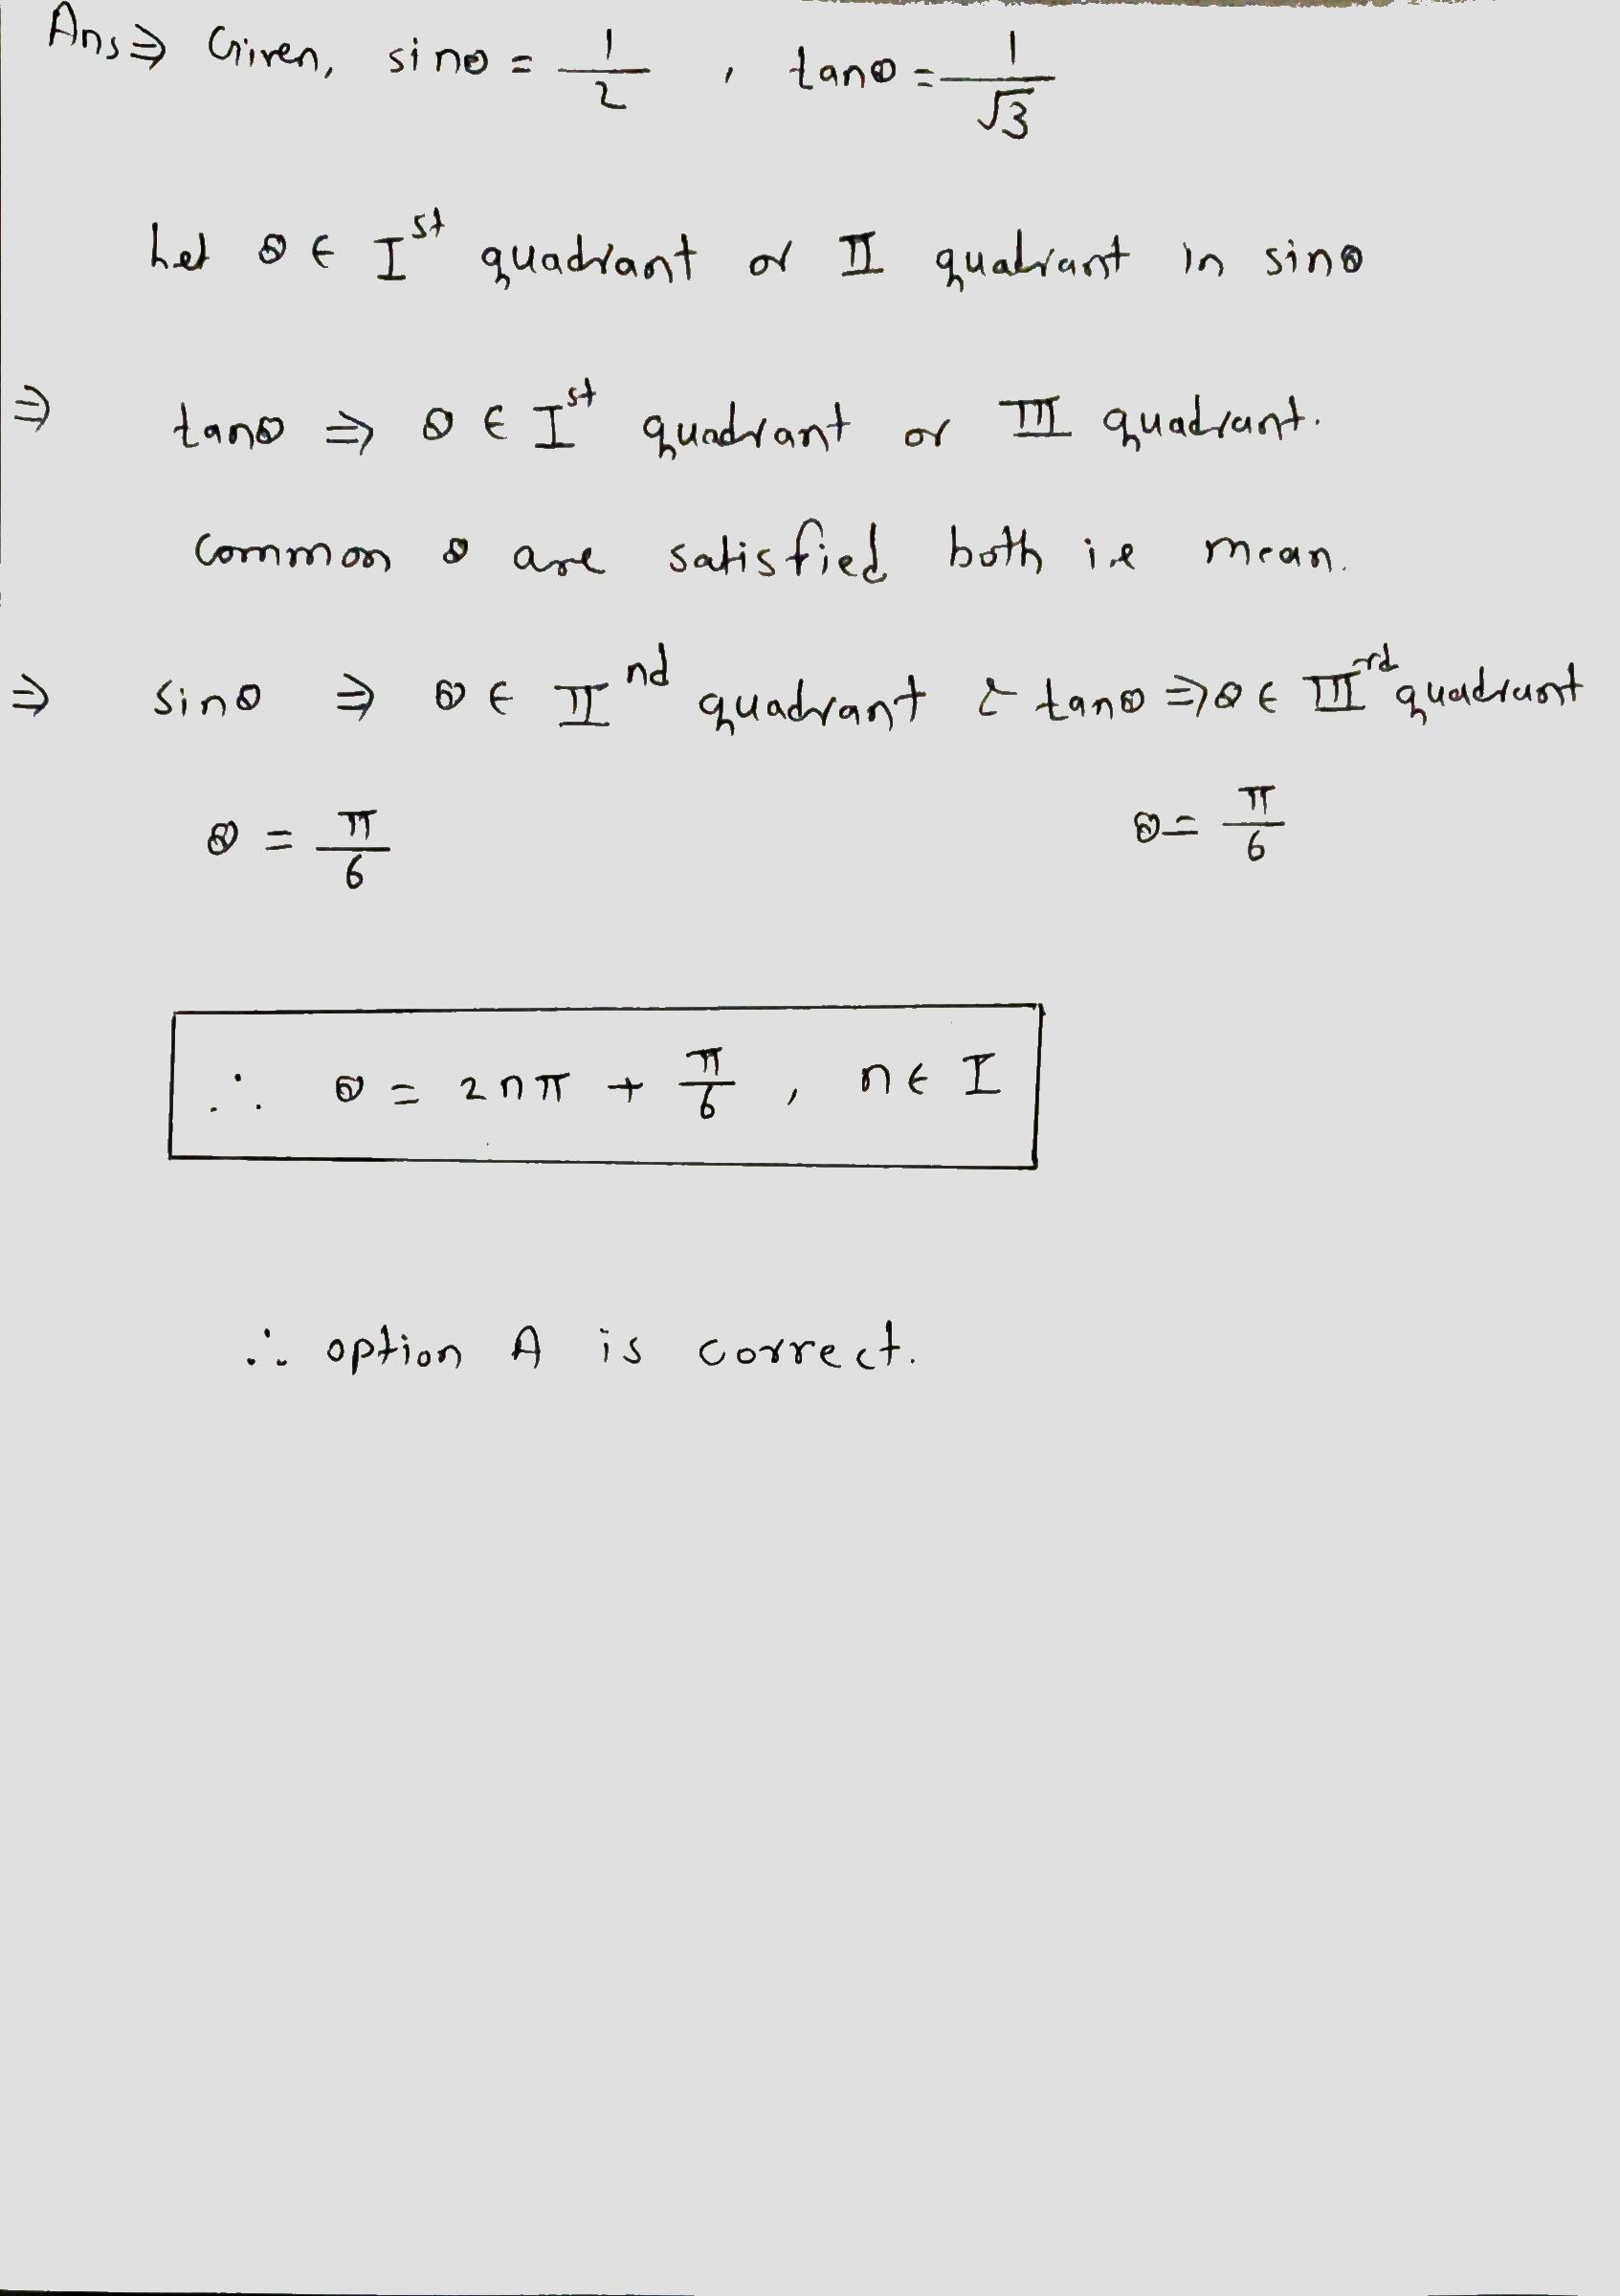 Ans ⇒ Given, sinθ = 1/2 , tanθ = 1/√3
Let θ ∈ Iˢᵗ quadrant or II quadrant in sinθ
⇒ tanθ ⇒ θ ∈ Iˢᵗ quadrant or III quadrant.
common θ are satisfied both i.e mean.
⇒ sinθ ⇒ θ ∈ IIⁿᵈ quadrant & tanθ ⇒ θ ∈ IIIʳᵈ quadrant
θ = π/6 θ = π/6
∴ θ = 2nπ + π/6 , n ∈ I
∴ option A is correct.